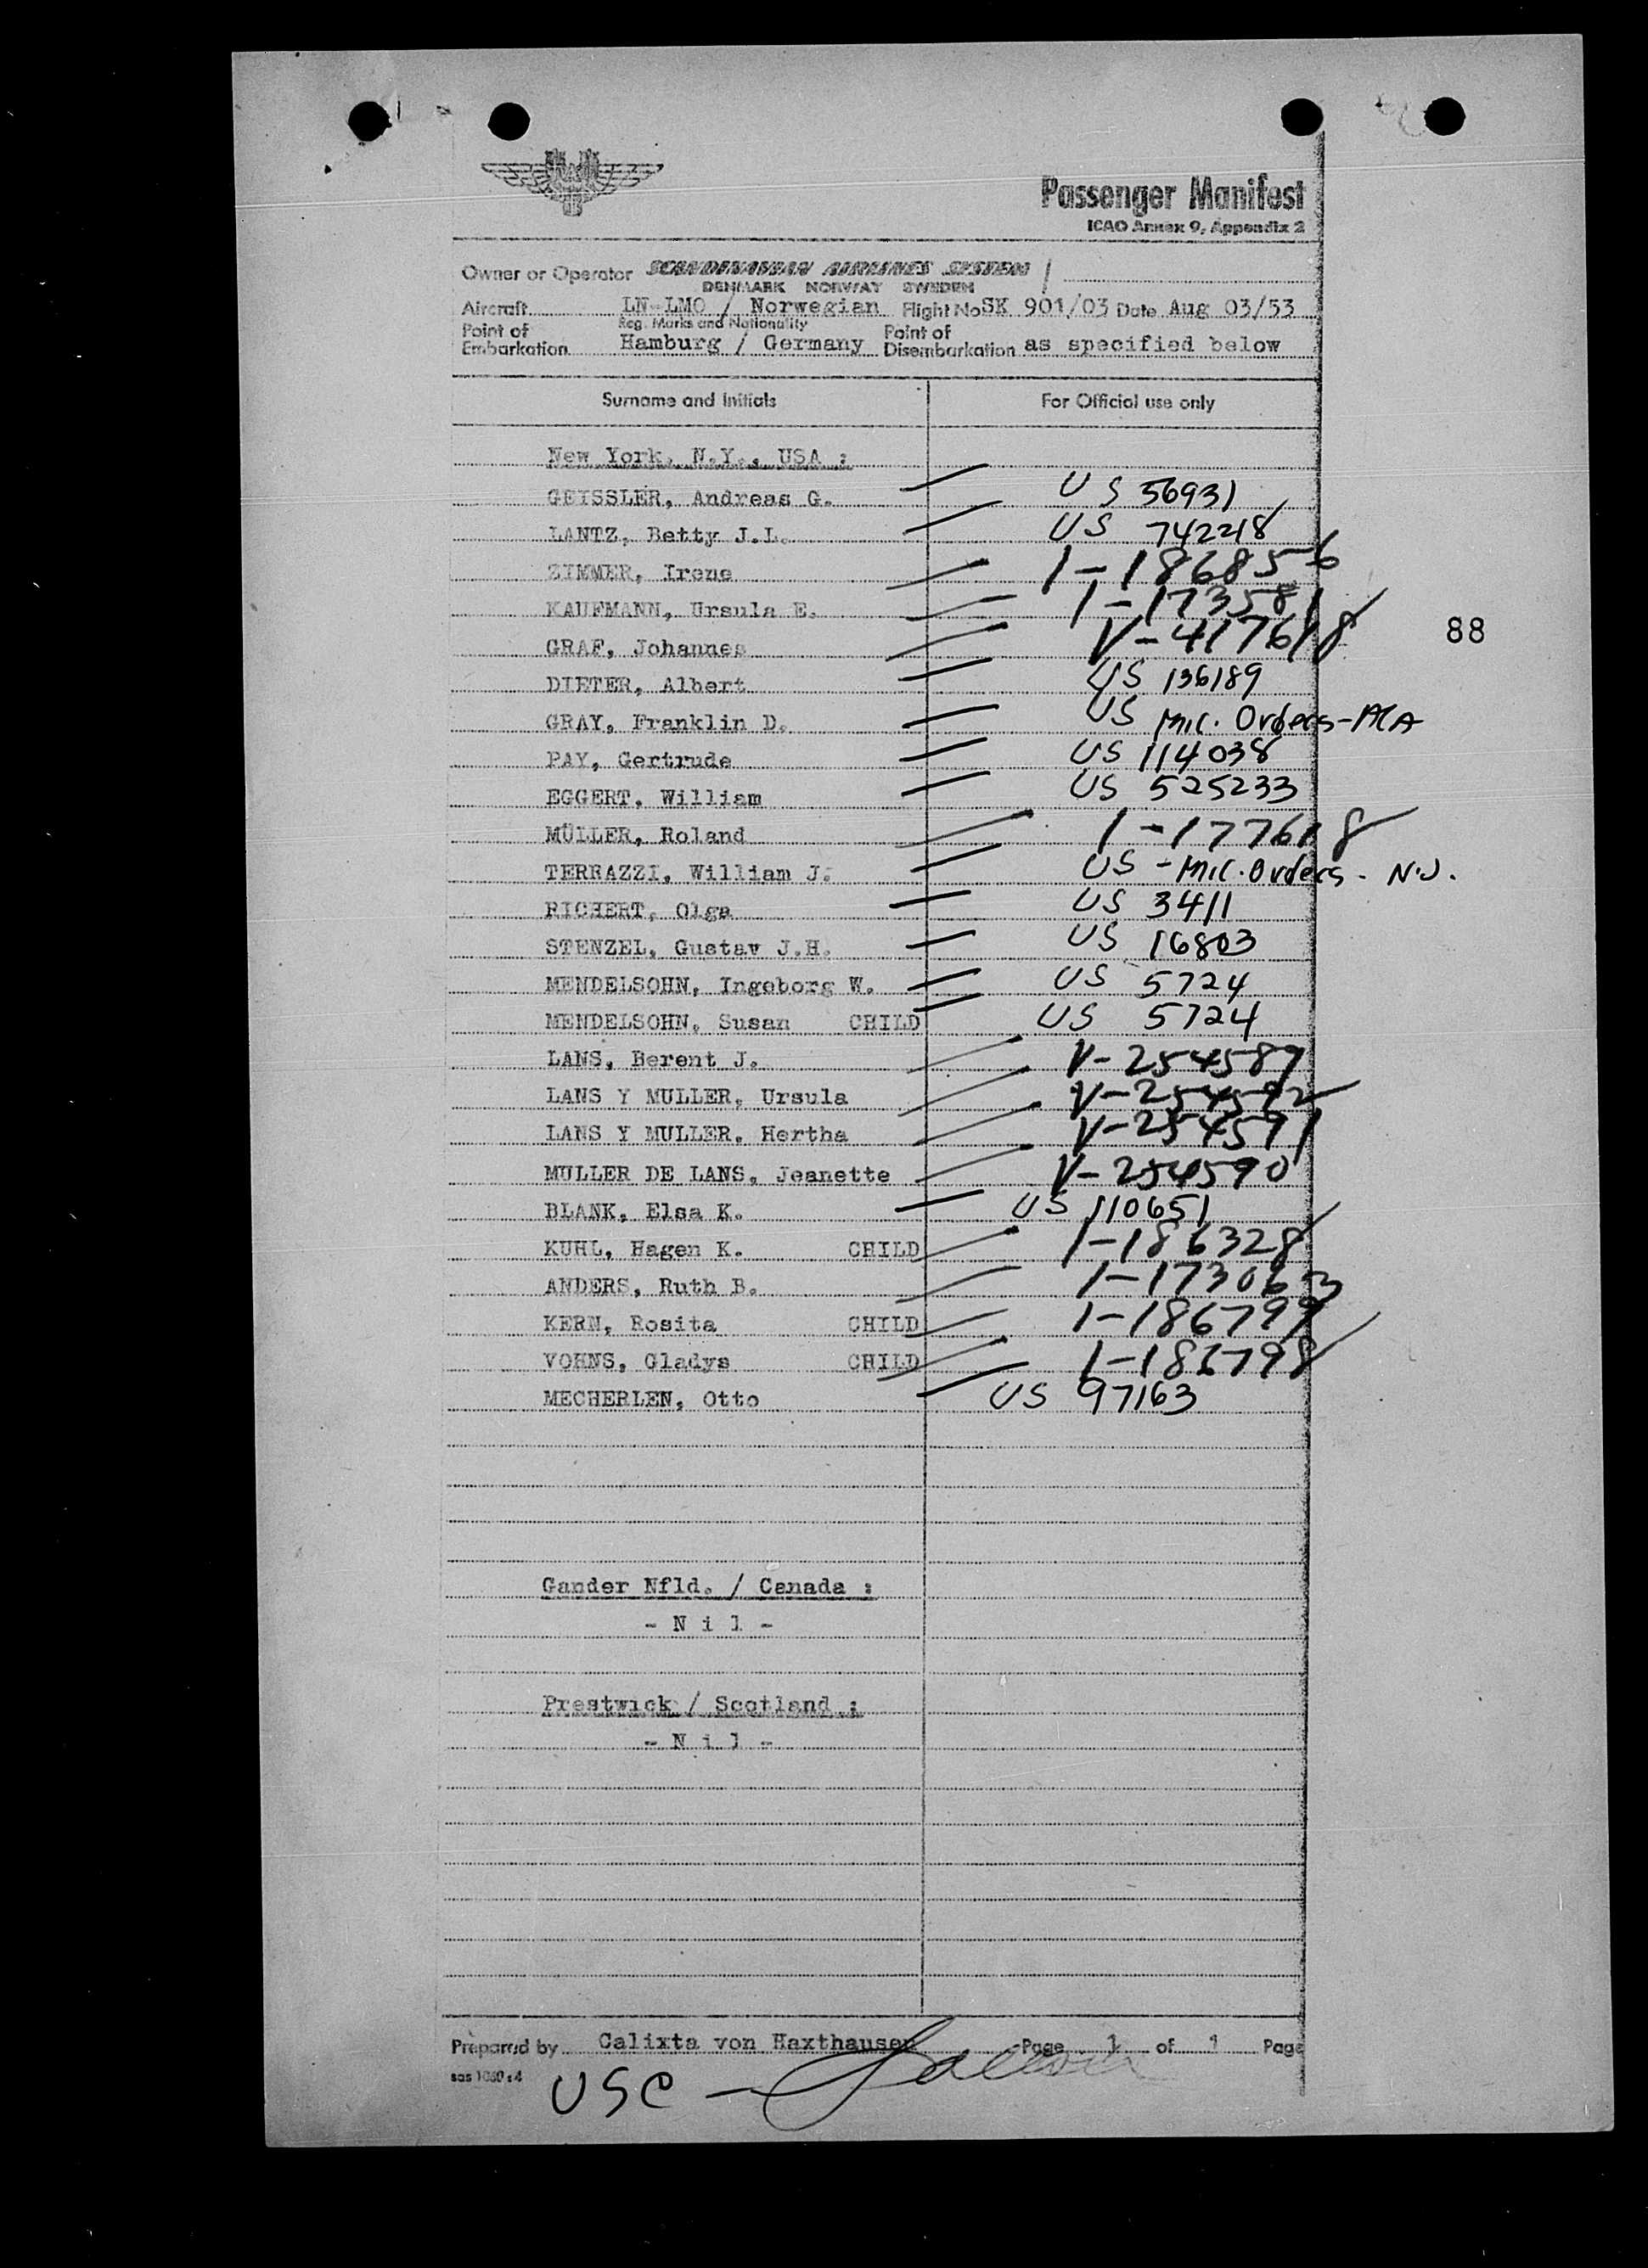 Passenger Manifest
ICAO Annex 9, Appendix 2
Owner or Operator SCANDINAVIAN AIRLINES SYSTEM
DENMARK NORWAY SWEDEN
Aircraft LN-LMO / Norwegian Flight No SK 901/03 Date Aug 03/53
Reg. Marks and Nationality
Point of Embarkation Hamburg / Germany Point of Disembarkation as specified below
Surname and Initials For Official use only
New York, N.Y., USA :
GEISSLER, Andreas G. US 56931
LANTZ, Betty J.L. US 742218
ZIMMER, Irene 1-186856
KAUFMANN, Ursula E. 1-173581
GRAF, Johannes V-417618
88
DIETER, Albert US 136189
GRAY, Franklin D. US Mil. Orders-
PAY, Gertrude US 114038
EGGERT, William US 525233
MÜLLER, Roland 1-177618
TERRAZZI, William J. US - Mil. Orders - N.J.
RICHERT, Olga US 3411
STENZEL, Gustav J.H. US 16803
MENDELSOHN, Ingeborg W. US 5724
MENDELSOHN, Susan CHILD US 5724
LANS, Berent J. V-254589
LANS Y MULLER, Ursula V-254592
LANS Y MULLER, Hertha V-254591
MULLER DE LANS, Jeanette V-254590
BLANK, Elsa K. US 110651
KUHL, Hagen K. CHILD 1-186328
ANDERS, Ruth B. 1-173063
KERN, Rosita CHILD 1-186799
VOHNS, Gladys CHILD 1-186798
MECHERLEN, Otto US 97163
Gander Nfld. / Canada :
- N i l -
Prestwick / Scotland :
- N i l -
Prepared by Calixta von Haxthausen Page 1 of 1 Page
sas 1060:4
USC -